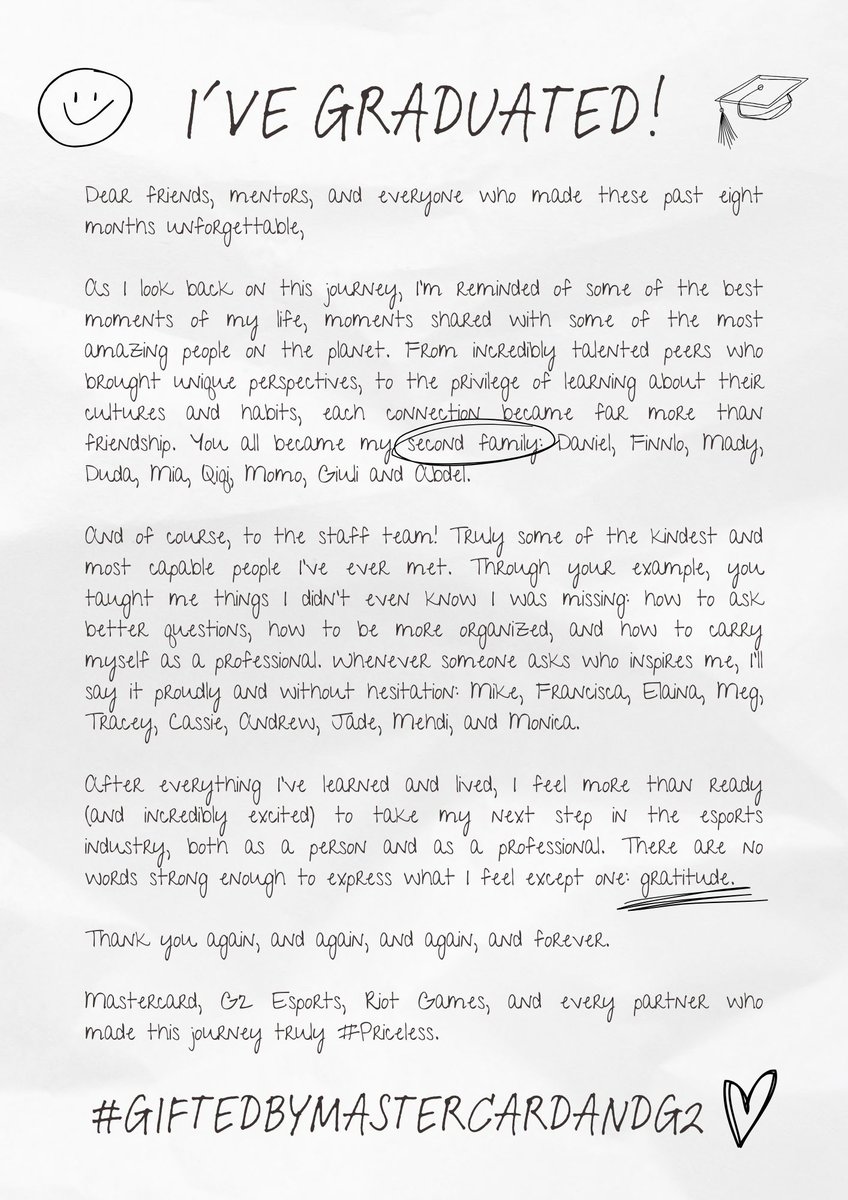 I'VE GRADUATED!
Dear friends, mentors, and everyone who made these past eight
months unforgettable,
As I look back on this journey, I'm reminded of some of the best
moments of my life, moments shared with some of the most
amazing people on the planet. From incredibly talented peers who
brought unique perspectives, to the privilege of learning about their
cultures and habits, each connection became far more than
friendship. You all became my second family: Daniel, Finnlo, Mady,
Duda, Mia, Qiqi, Momo, Giuli and Abdel.
And of course, to the staff team! Truly some of the kindest and
most capable people I've ever met. Through your example, you
taught me things I didn't even know I was missing: how to ask
better questions, how to be more organized, and how to carry
myself as a professional. Whenever someone asks who inspires me, I'll
say it proudly and without hesitation: Mike, Francisca, Elaina, Meg,
Tracey, Cassie, Andrew, Jade, Mehdi, and Monica.
After everything I've learned and lived, I feel more than ready
(and incredibly excited) to take my next step in the esports
industry, both as a person and as a professional. There are no
words strong enough to express what I feel except one: gratitude.
Thank you again, and again, and again, and forever.
Mastercard, G2 Esports, Riot Games, and every partner who
made this journey truly #Priceless.
#GIFTEDBYMASTERCARDANDG2